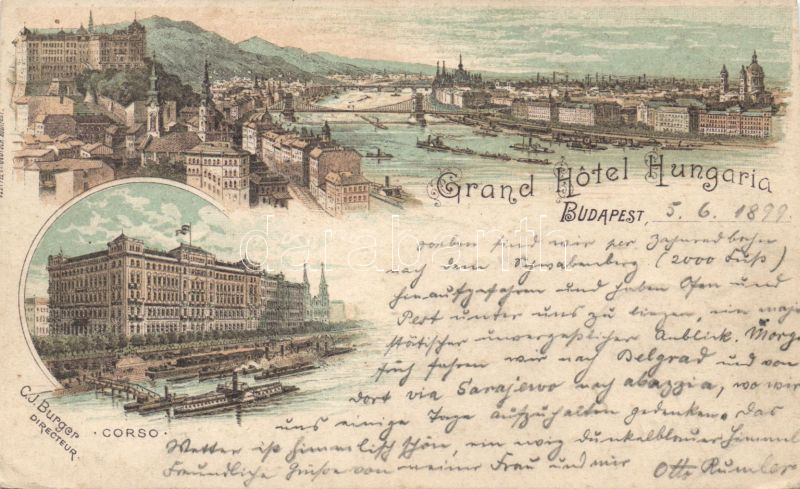 Grand Hôtel Hungaria
BUDAPEST 5. 6. 1899.
soeben sind wir per Zahnradbahn
nach dem Schwabenberg (2000 Fuß)
hinaufgefahren und haben Ofen und
Pest unter uns zu liegen, ein maje
stätischer unvergeßlicher Anblick. Morgen
früh fahren wir nach Belgrad und von
dort via Sarajewo nach Abazzia, wo wir
uns einige Tage aufzuhalten gedenken. Das
Wetter ist himmlisch schön, ein ewig dunkelblauer Himmel
Freundliche Grüße von meiner Frau und mir Otto
C.J. Burger
DIRECTEUR.
· CORSO ·
darabanth